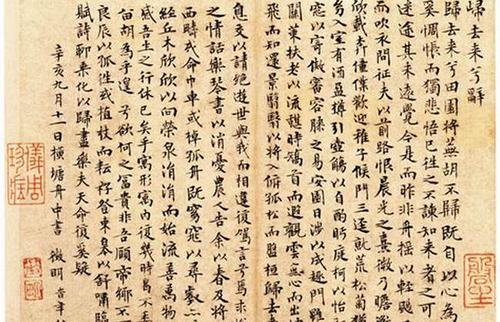 歸去来兮辭
歸去来兮田園将蕪胡不歸既自以心為
奚惆悵而獨悲悟已往之不諫知来者之可
迷途其未遠覺今是而昨非舟摇以輕颺
而吹衣問征夫以前路恨晨光之熹微乃瞻
欣載奔僮僕歡迎稚子候門三逕就荒松菊猶
幼入室有酒盈樽引壺觴以自酌眄庭柯以怡
窓以寄傲審容膝之易安園日涉以成趣門雖
關策扶老以流憩時矯首而遐觀雲無心而出
飛而知還景翳翳以将入撫孤松而盤桓歸去
息交以請絶遊世與我而相遺復駕言兮焉求
之情話樂琴書以消憂農人告余以春及将
西疇或命巾車或棹孤舟既窈窕以尋壑
經丘木欣欣以向榮泉涓涓而始流善萬物
感吾生之行休已矣乎寓形宇内復幾時曷不
由胡為乎遑遑兮欲何之富貴非吾願帝鄉不
良辰以孤往或植杖而耘耔登東皋以舒嘯臨
賦詩聊乘化以歸盡樂夫天命復奚疑
辛亥九月十一日横塘舟中書 徵明